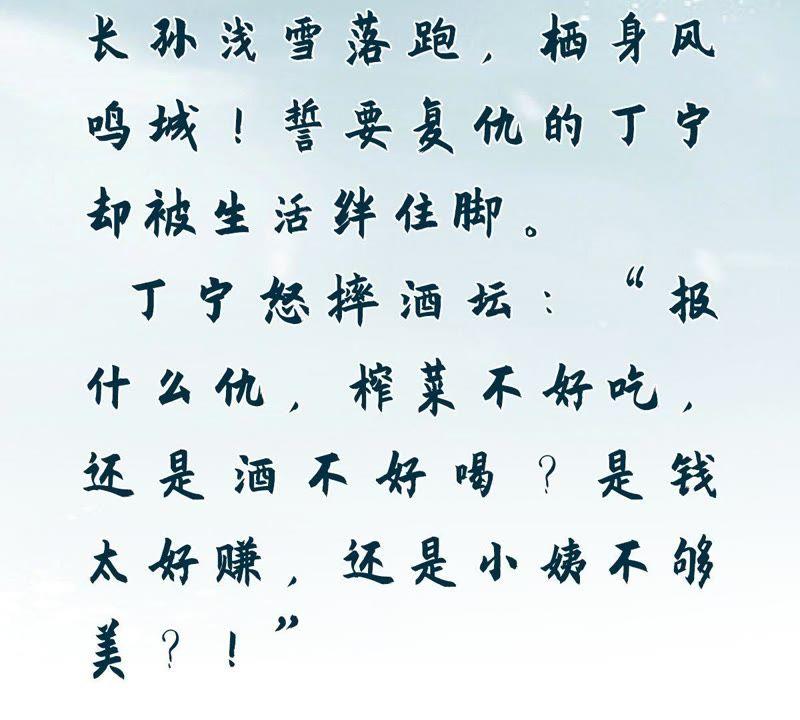 长孙浅雪落跑，栖身风
鸣城！誓要复仇的丁宁
却被生活绊住脚。
丁宁怒摔酒坛：“报
什么仇，榨菜不好吃，
还是酒不好喝？是钱
太好赚，还是小姨不够
美？！”